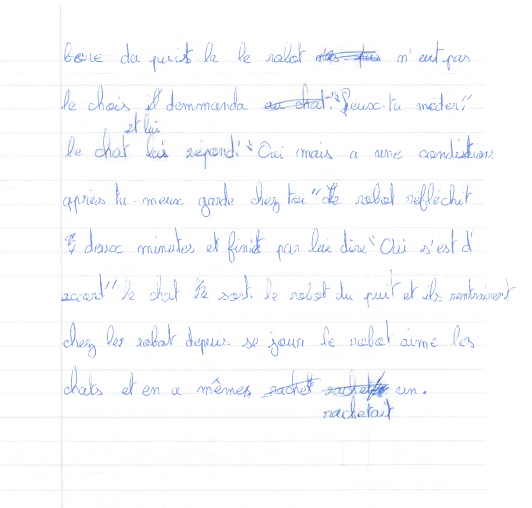 bore du puist la le robot n'eut pas
le chois il demmanda "Peux-tu méder"
et lui
le chat répond "Oui mais a une condistion
après tu meux garde chez toi" le robot réfléchit
deux minutes et finit par lui dire "Oui s'est d'
accord" le chat sort le robot du puit et ils rentrairent
chez les robot depuis se jour le robot aime les
chats et en a mêmes un.
rachetait